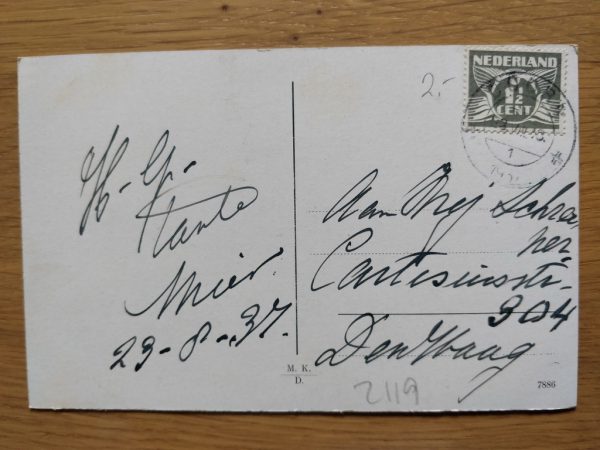 2,-
NEDERLAND
1½
CENT
1
H. G.
Tante
Mier.
23-8-37.
Aan Mej Schra-
per
Cartesiusstr.
304
Den Haag
M. K.
D.
2119
7886